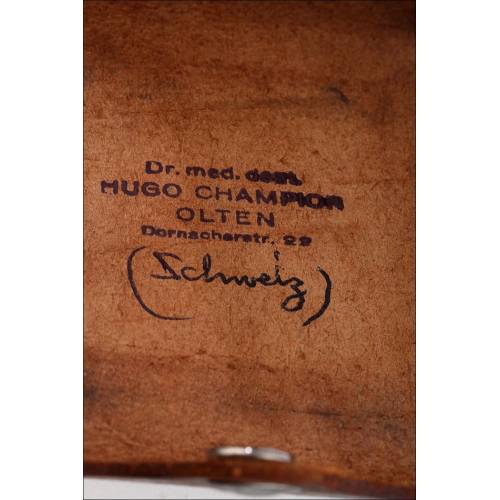 Dr. med. dent.
HUGO CHAMPION
OLTEN
Dornacherstr. 29
(Schweiz)